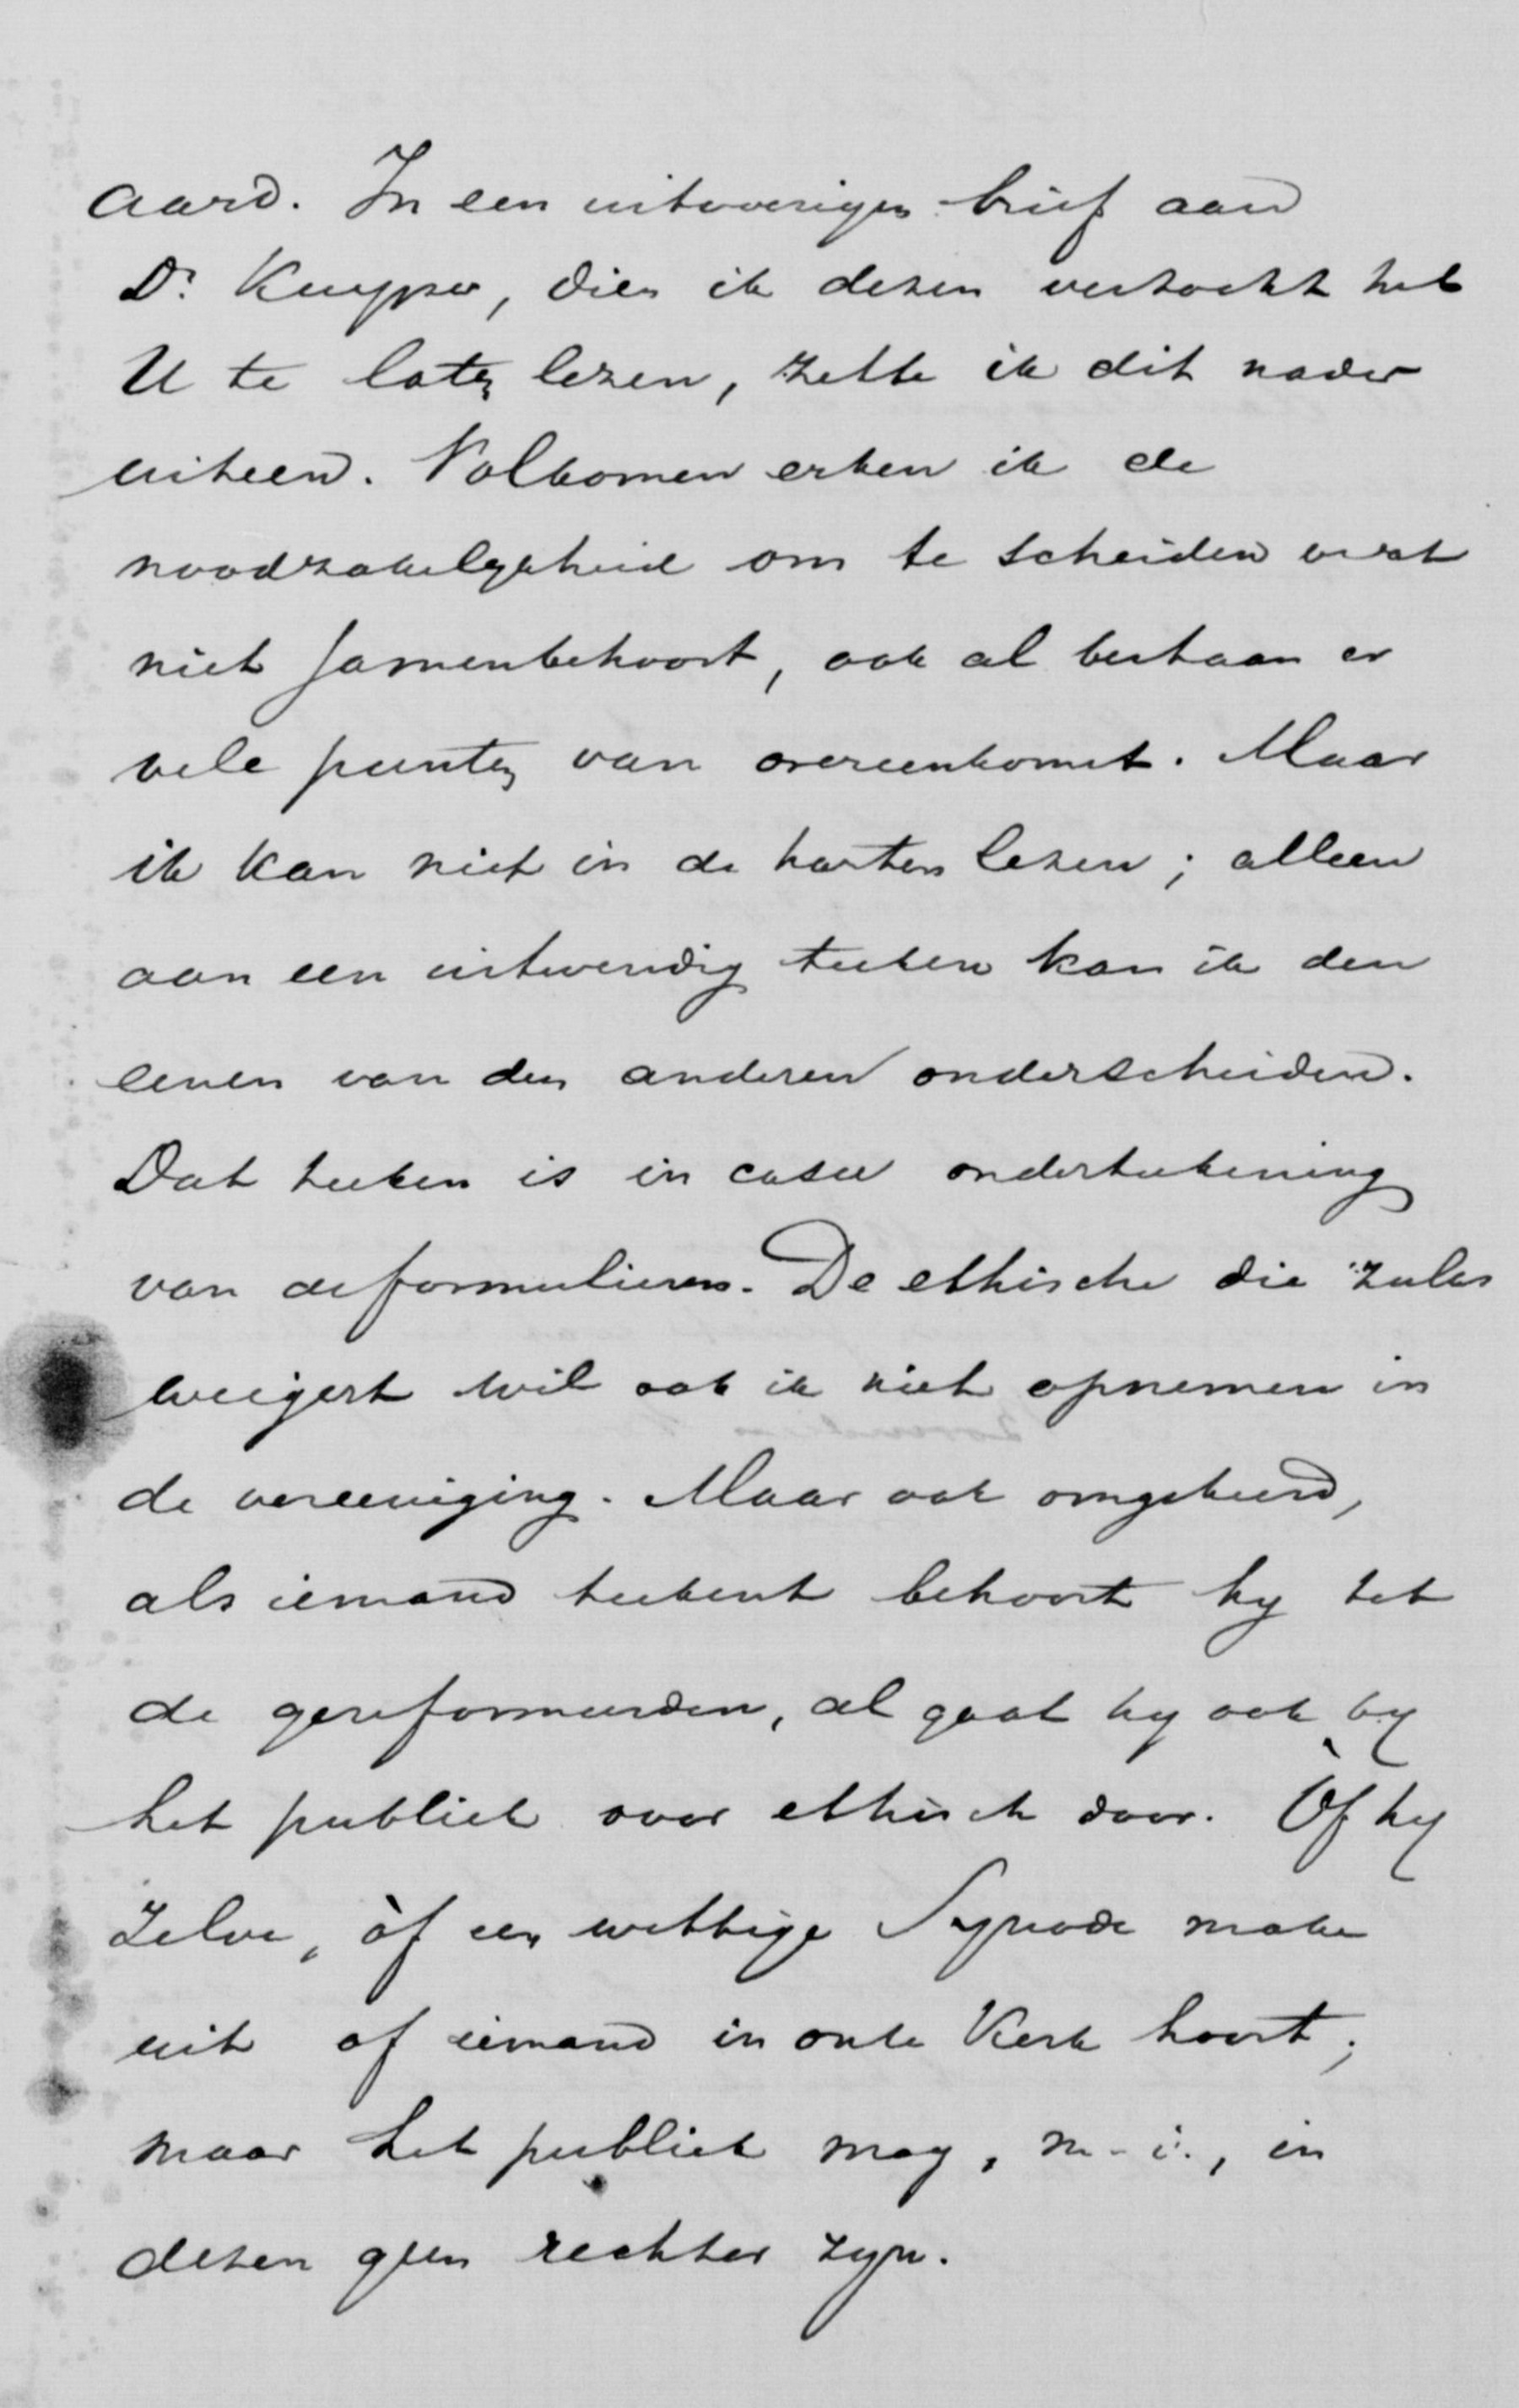 aard. In een uitvoerigen brief aan
Dr. Kuyper, dien ik dezen verzocht heb
U te laten lezen, zette ik dit nader
uiteen. Volkomen erken ik de
noodzakelykheid om te scheiden wat
niet samenbehoort, ook al bestaan er
vele punten van overeenkomst. Maar
ik kan niet in de harten lezen; alleen
aan een uitwendig teeken kan ik den
eenen van den anderen onderscheiden.
Dat teeken is in casu onderteekening
van de formulieren. De ethische die zulks
weigert wil ook ik niet opnemen in
de vereeniging. Maar ook omgekeerd,
als iemand teekent behoort hy tot
de gereformeerden, al gaat hy ook by
het publiek voor ethisch door. Òf hy
zelve, òf een wettige Synode make
uit of iemand in onze Kerk hoort;
maar het publiek mag, m.i., in
dezen geen rechter zyn.